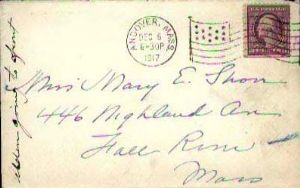 ANDOVER, MASS.
DEC 6
6-30P
1917
Miss Mary E. Shon
446 Highland Av
Fall River
Mass